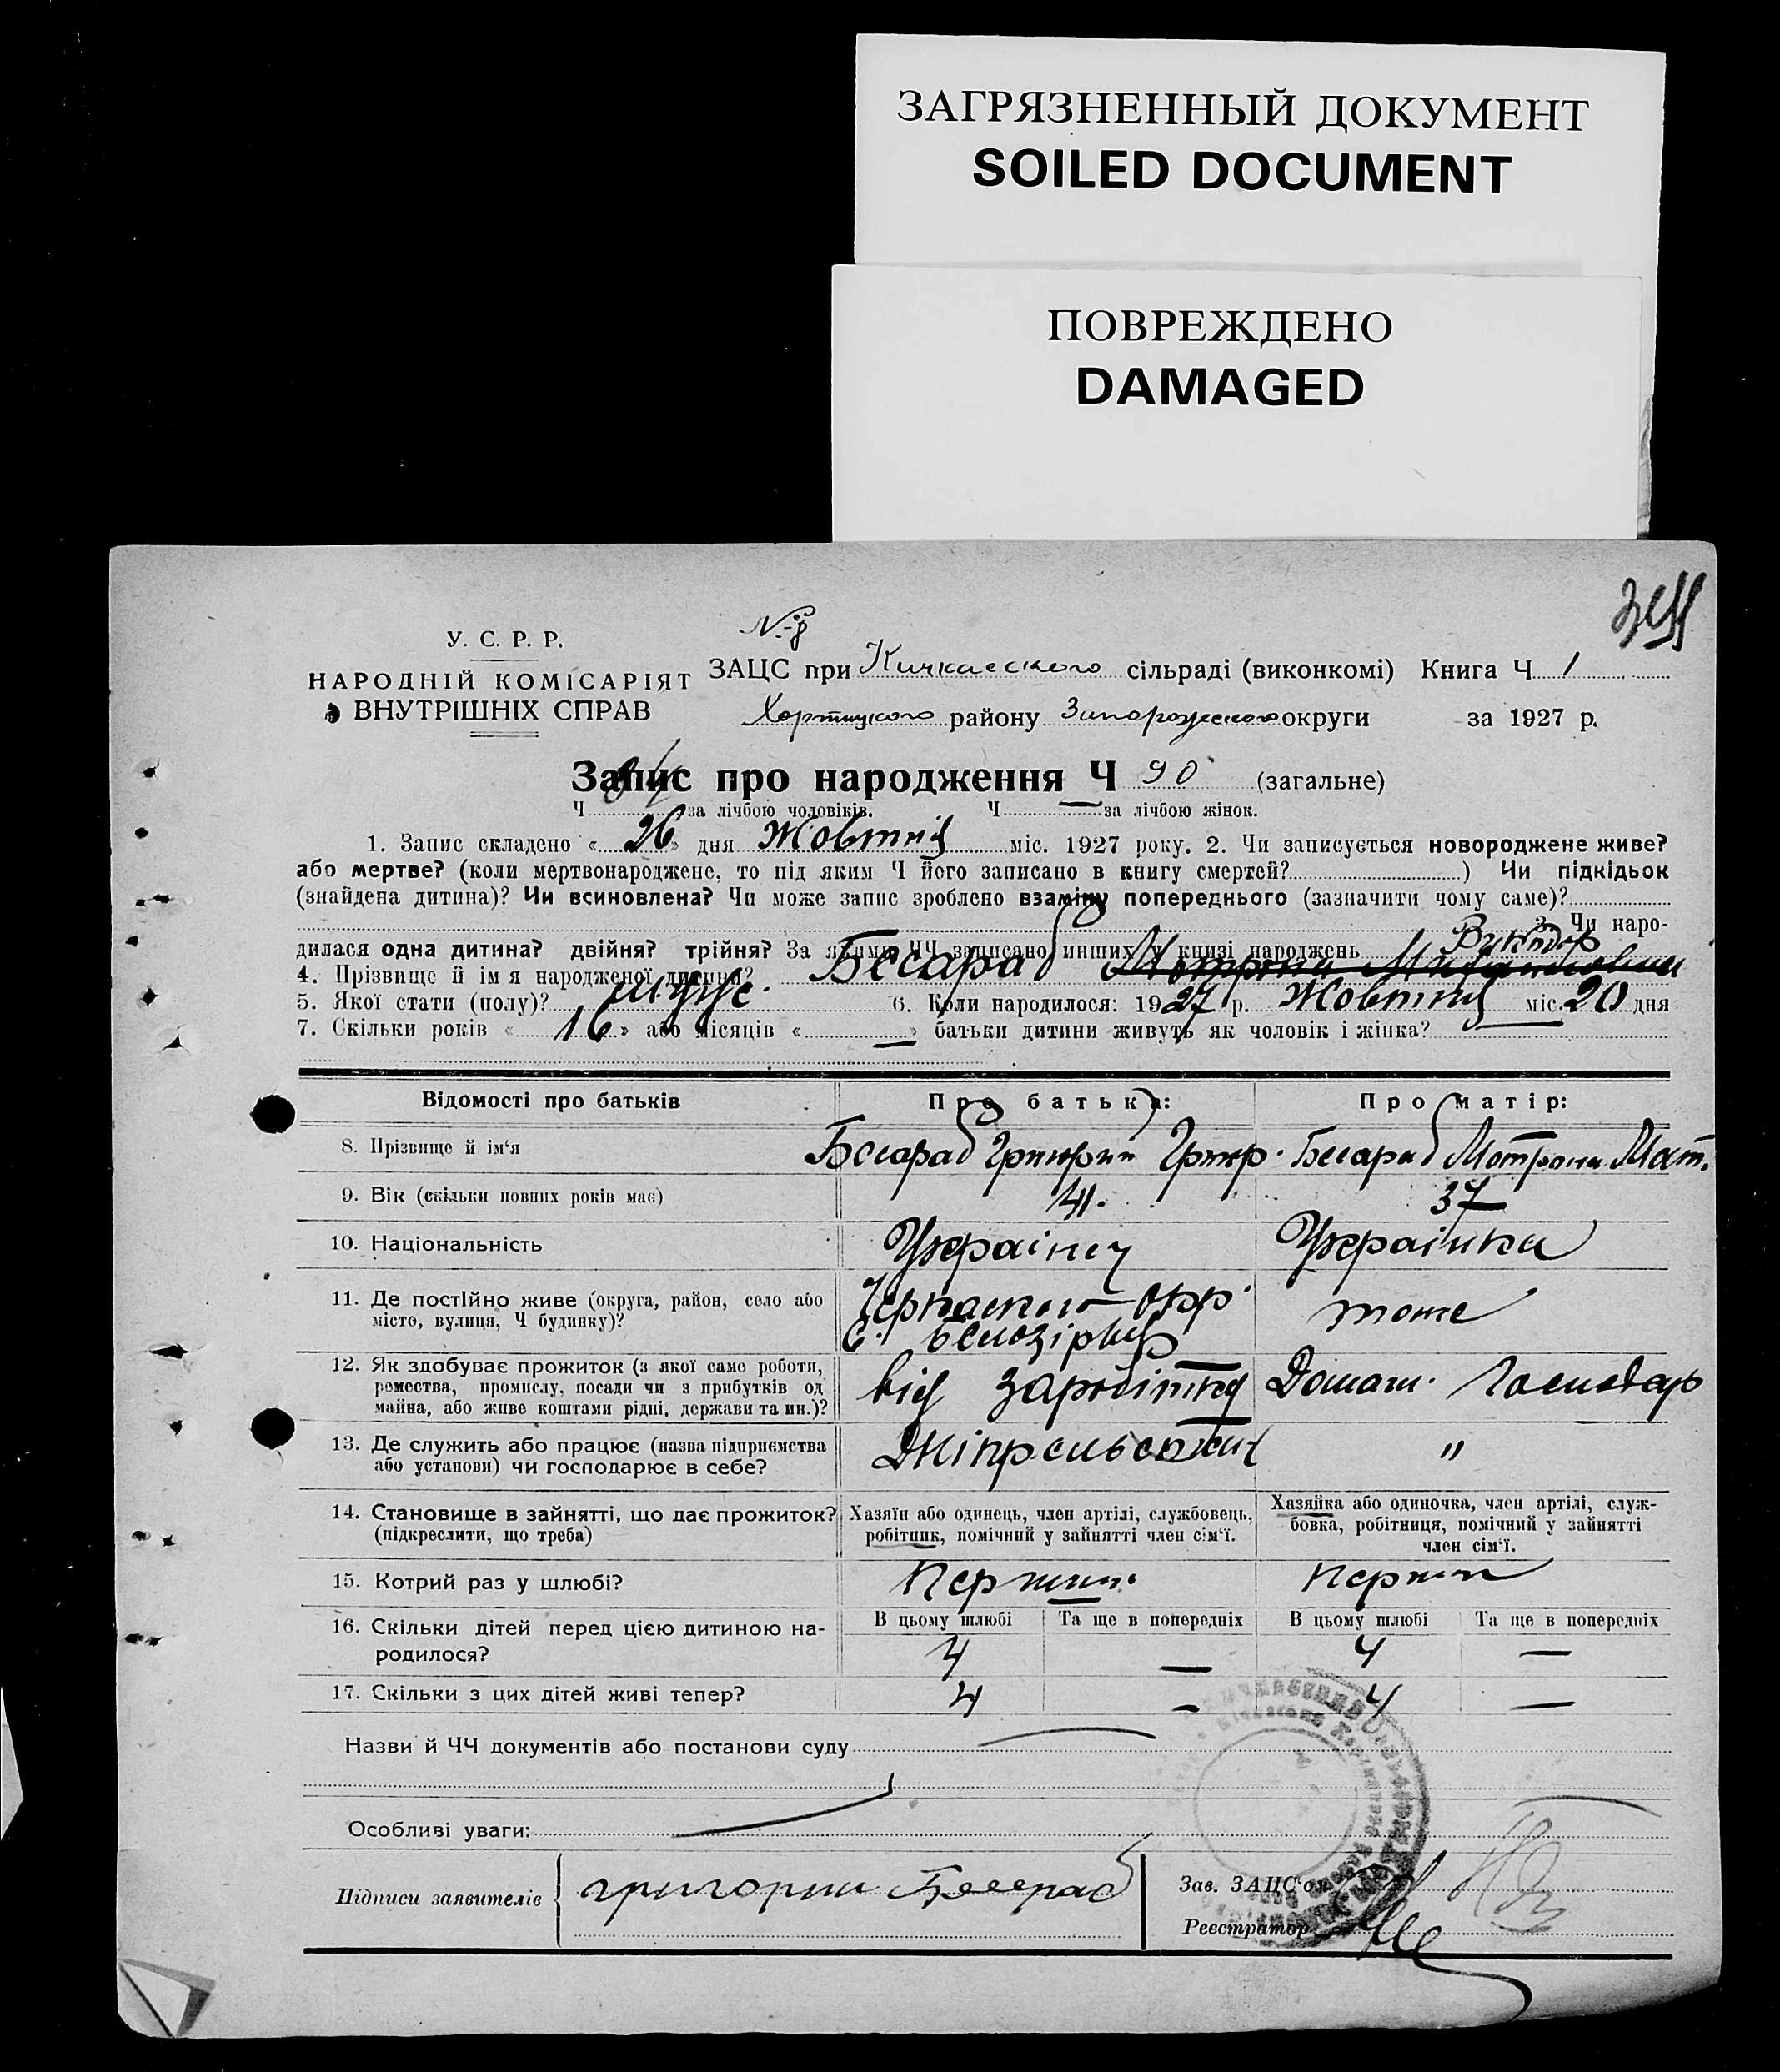 ЗАГРЯЗНЕННЫЙ ДОКУМЕНТ
SOILED DOCUMENT
ПОВРЕЖДЕНО
DAMAGED
У. С. Р. Р.
НАРОДНІЙ КОМІСАРІЯТ
ВНУТРІШНІХ СПРАВ
ЗАЦС при Кичкасского сільраді (виконкомі) Книга Ч 1
Хортицкого району Запорожского округи за 1927 р.
Запис про народження Ч 90 (загальне)
Ч за лічбою чоловіків. Ч — за лічбою жінок.
1. Запис складено « 26 » дня Жовтня міс. 1927 року. 2. Чи записується новороджене живе?
або мертве? (коли мертвонароджене, то під яким Ч його записано в книгу смертей? ) Чи підкідьок
(знайдена дитина)? Чи всиновлена? Чи може запис зроблено взаміну попереднього (зазначити чому саме)?
3. Чи наро-
дилася одна дитина? двійня? трійня? За якими ЧЧ записано инших у книзі народжень
Виктор
4. Прізвище й ім я народженої дитини? Бесараб Мотрона
5. Якої стати (полу)? мужс. 6. Коли народилося: 1927 р. Жовтня міс. 20 дня
7. Скільки років « 16 » або місяців « — » батьки дитини живуть як чоловік і жінка? —
Відомості про батьків Про батька: Про матір:
8. Прізвище й ім‘я Бесараб Григорий Григор. Бесараб Мотрона Мат.
9. Вік (скільки повних років має) 41. 37
10. Національність Українец Українка
11. Де постійно живе (округа, район, село або
місто, вулиця, Ч будинку)? Черкаского окр.
с. Белозірья тоже
12. Як здобуває прожиток (з якої саме роботи,
ремества, промислу, посади чи з прибутків од
майна, або живе коштами рідні, держави та ин.)? від заробітку Домаш. Господар
13. Де служить або працює (назва підприємства
або установи) чи господарює в себе? "
14. Становище в зайнятті, що дає прожиток?
(підкреслити, що треба)
Хазяїн або одинець, член артілі, службовець,
робітник, помічний у зайнятті член сім‘ї.
Хазяйка або одиночка, член артілі, служ-
бовка, робітниця, помічний у зайнятті
член сім‘ї.
15. Котрий раз у шлюбі? Перший
В цьому шлюбі Та ще в попередніх В цьому шлюбі Та ще в попередніх
16. Скільки дітей перед цією дитиною на-
родилося? 4 — 4 —
17. Скільки з цих дітей живі тепер? 4 — 4 —
Назви й ЧЧ документів або постанови суду
Особливі уваги:
Підписи заявителів григорий Бесераб
Зав. ЗАЦС‘ом
Реєстратор